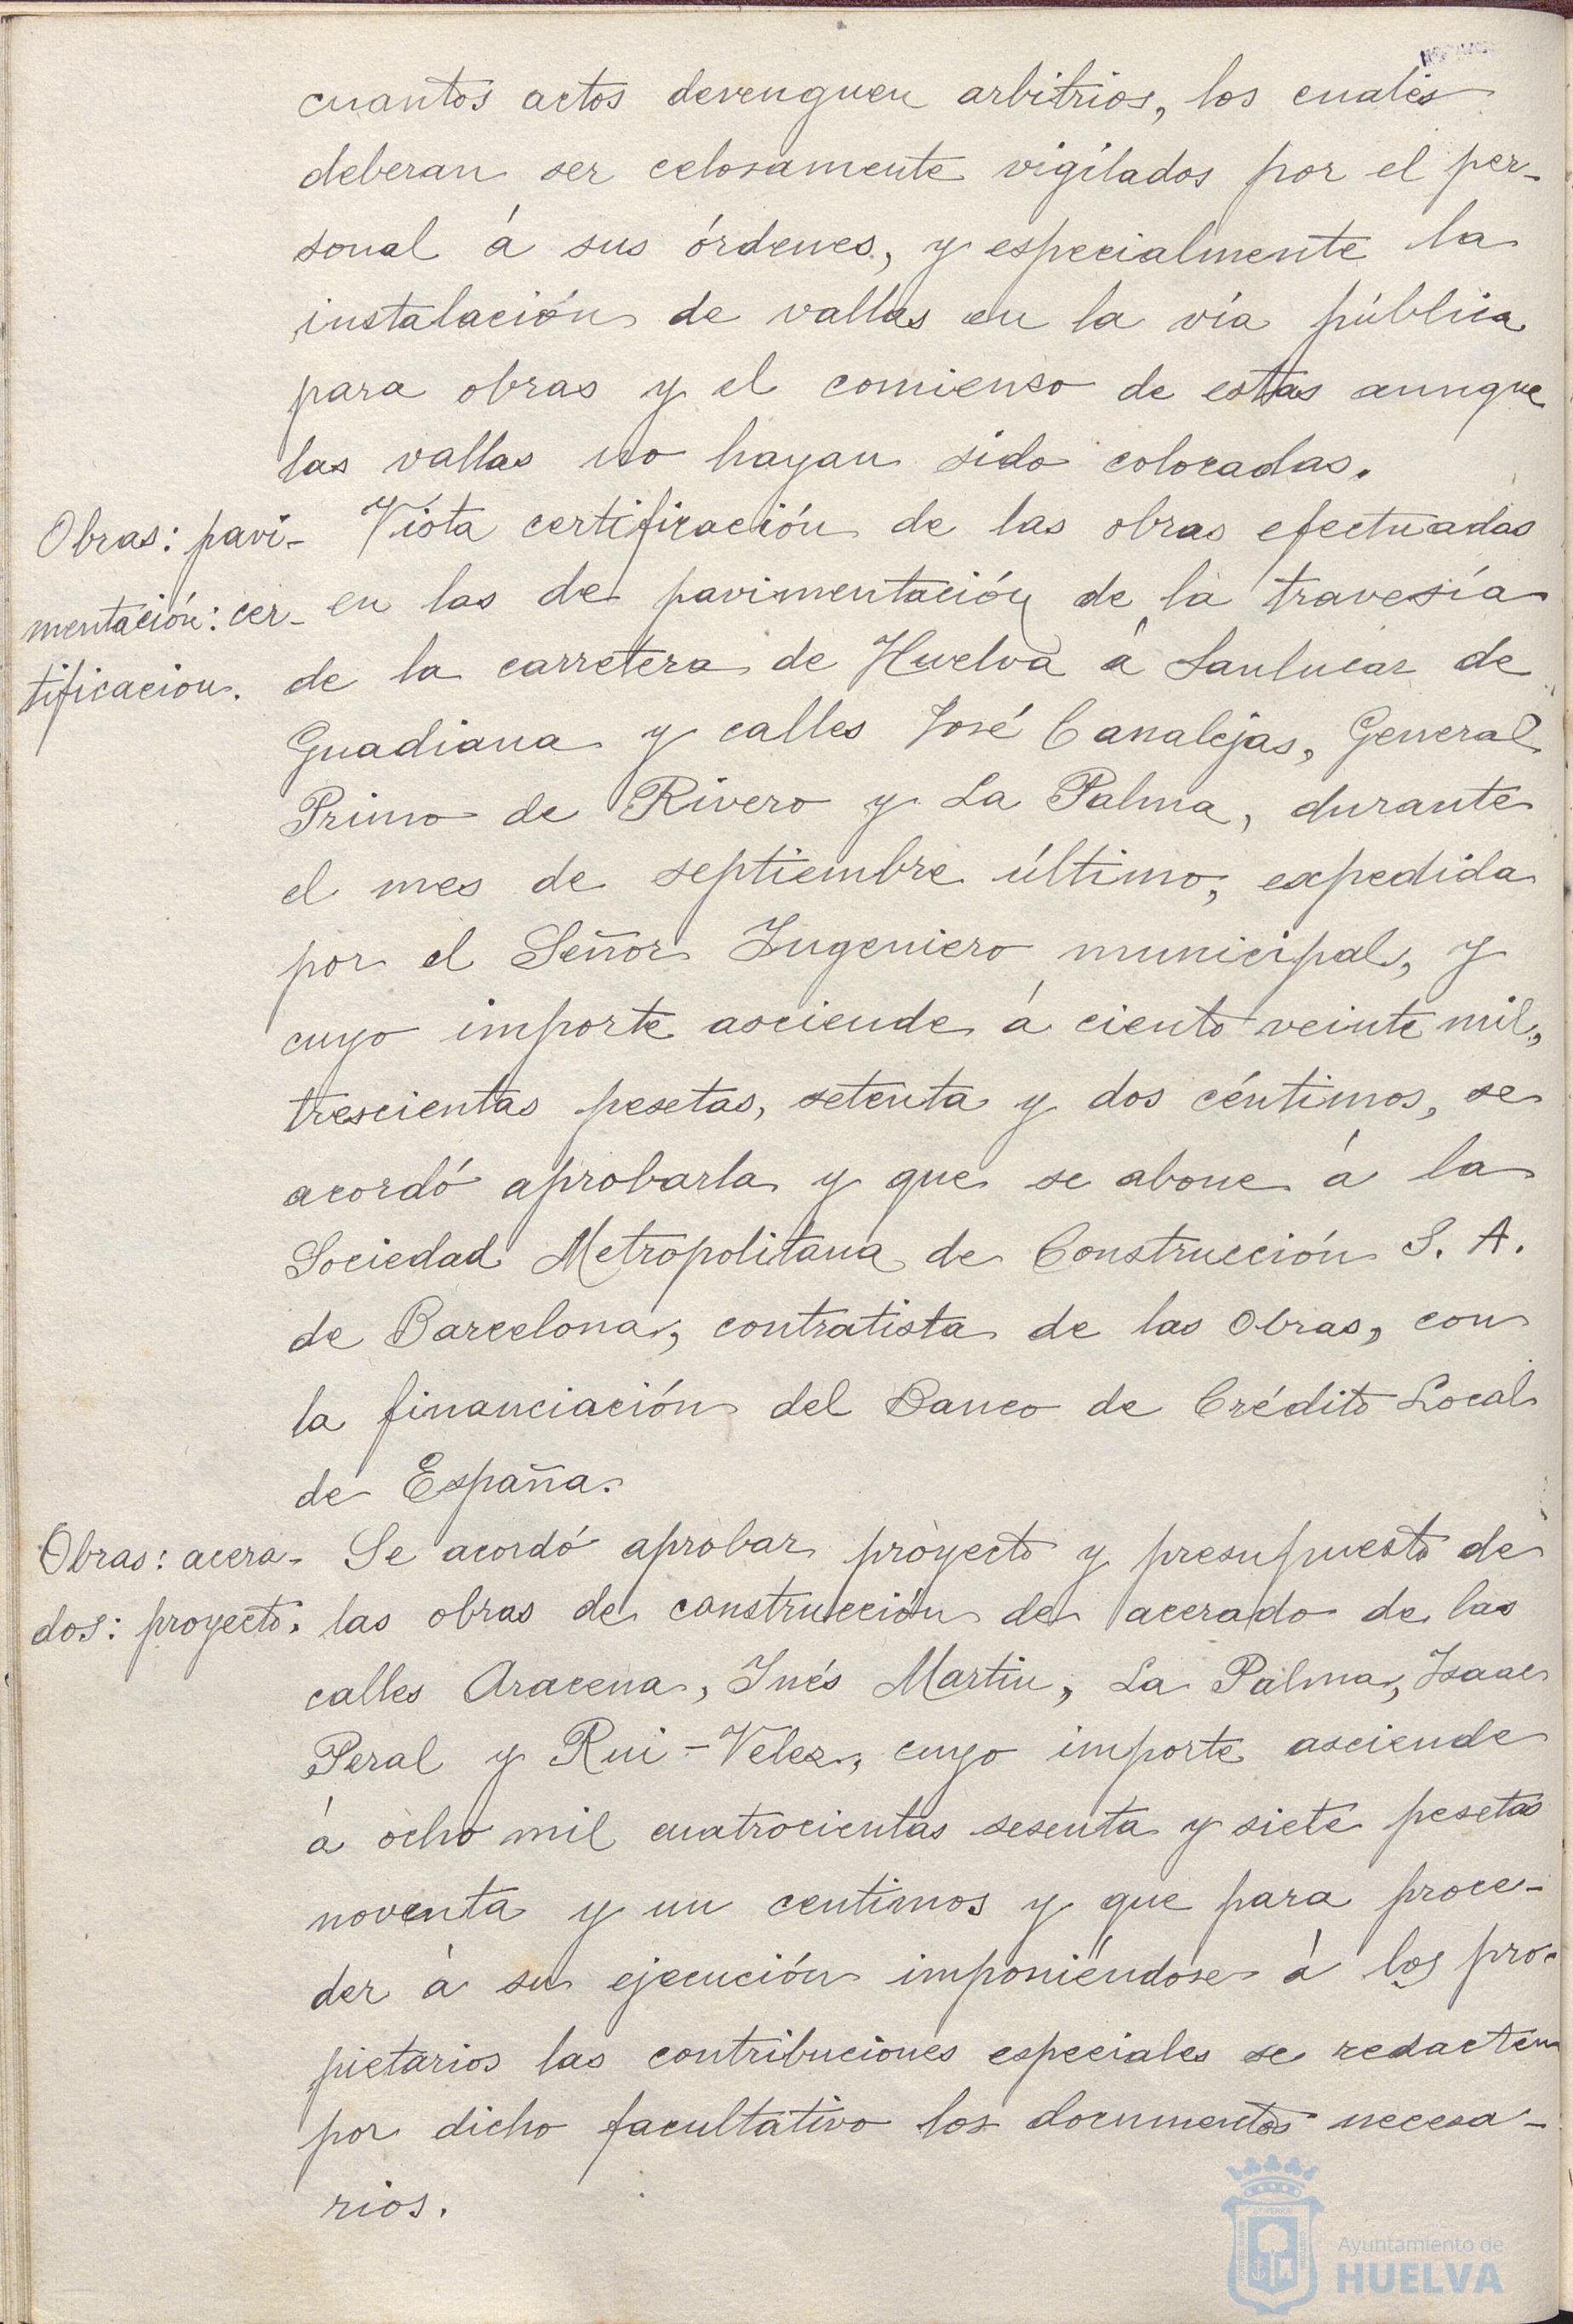 cuantos actos devenguen arbitrios, los cuales
deberan ser celosamente vigilados por el per-
sonal á sus órdenes, y especialmente la
instalación de vallas en la vía pública
para obras y el comienso de estas aunque
las vallas no hayan sido colocadas.
Obras: pavi-
mentación: cer-
tificacion.
Vista certificación de las obras efectuadas
en las de pavimentación de la travesía
de la carretera de Huelva á Sanlucar de
Guadiana y calles José Canalejas, General
Primo de Rivero y La Palma, durante
el mes de septiembre último, expedida
por el Señor Ingeniero municipal, y
cuyo importe asciende á ciento veinte mil,
trescientas pesetas, setenta y dos céntimos, se
acordó aprobarla y que se abone á la
Sociedad Metropolitana de Construcción S. A.
de Barcelona, contratista de las obras, con
la financiación del Banco de Crédito Local
de España.
Obras: acera-
dos: proyecto.
Se acordó aprobar proyecto y presupuesto de
las obras de construcción de acerado de las
calles Aracena, Inés Martin, La Palma, Isaac
Peral y Rui-Velez, cuyo importe asciende
á ocho mil cuatrocientas sesenta y siete pesetas
noventa y un centimos y que para proce-
der á su ejecución imponiéndose á los pro-
pietarios las contribuciones especiales se redacten
por dicho facultativo los documentos necesa-
rios.
Ayuntamiento de
HUELVA